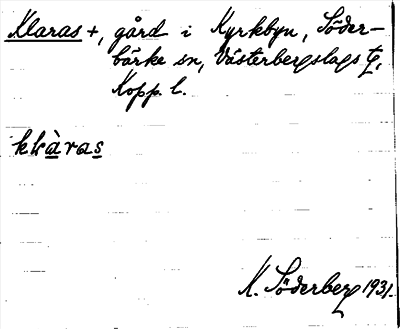 Klaras +, gård i Kyrkbyn, Söder-
bärke sn, Västerbergslags tg,
Kopp. l.
klàras
K. Söderberg 1931.